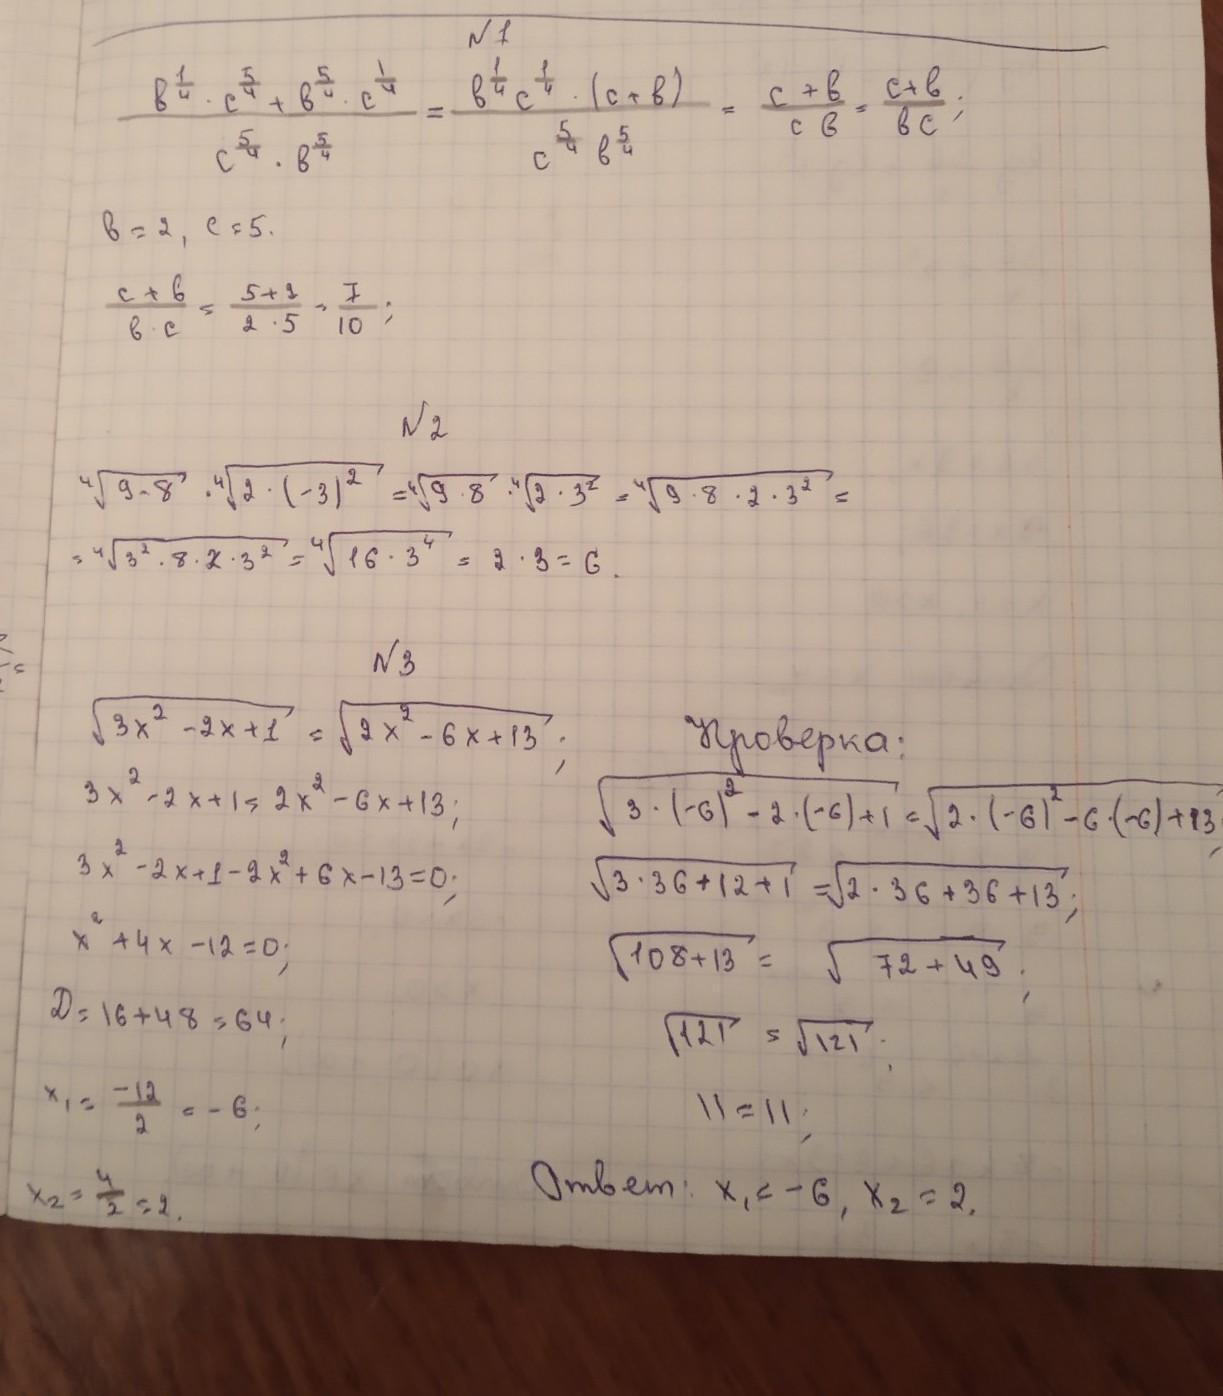 N1
(в^(1/4) · с^(5/4) + в^(5/4) · с^(1/4)) / (с^(5/4) · в^(5/4)) = (в^(1/4) с^(1/4) · (с+в)) / (с^(5/4) в^(5/4)) = (с+в)/(с в) = (с+в)/(в с);
в = 2, с = 5.
(с+в)/(в·с) = (5+2)/(2·5) = 7/10;
N2
⁴√(9·8) · ⁴√(2·(-3)²) = ⁴√(9·8) · ⁴√(2·3²) = ⁴√(9·8·2·3²) =
= ⁴√(3²·8·2·3²) = ⁴√(16·3⁴) = 2·3 = 6.
N3
√(3x² - 2x + 1) = √(2x² - 6x + 13);
3x² - 2x + 1 = 2x² - 6x + 13;
3x² - 2x + 1 - 2x² + 6x - 13 = 0;
x² + 4x - 12 = 0;
D = 16 + 48 = 64;
x₁ = -12/2 = -6;
x₂ = 4/2 = 2.
Проверка:
√(3·(-6)² - 2·(-6) + 1) = √(2·(-6)² - 6·(-6) + 13);
√(3·36 + 12 + 1) = √(2·36 + 36 + 13);
√(108 + 13) = √(72 + 49);
√121 = √121;
11 = 11;
Ответ: x₁ = -6, x₂ = 2.